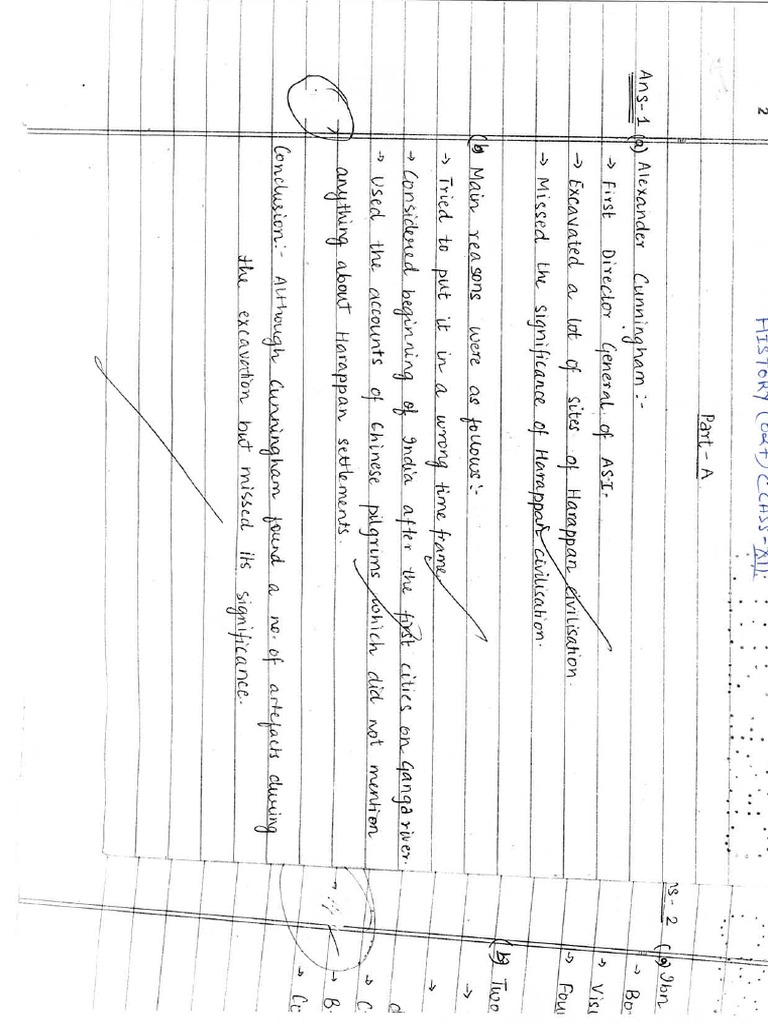 2
HISTORY (027) CLASS-XII
Part-A
Ans-1 (a) Alexander Cunningham:-
→ First Director General of ASI.
→ Excavated a lot of sites of Harappan civilisation.
→ Missed the significance of Harappan civilisation.
(b) Main reasons were as follows:-
→ Tried to put it in a wrong time frame
→ Considered beginning of India after the first cities on Ganga river.
→ Used the accounts of Chinese pilgrims which did not mention
anything about Harappan settlements.
Conclusion:- Although Cunningham found a no. of artefacts during
the excavation but missed its significance.
ns-2 (a) Ibn
→ Bo
→ Visi
→ Fou
(b) Two
→
→
d
→ C
→ B
→ Co